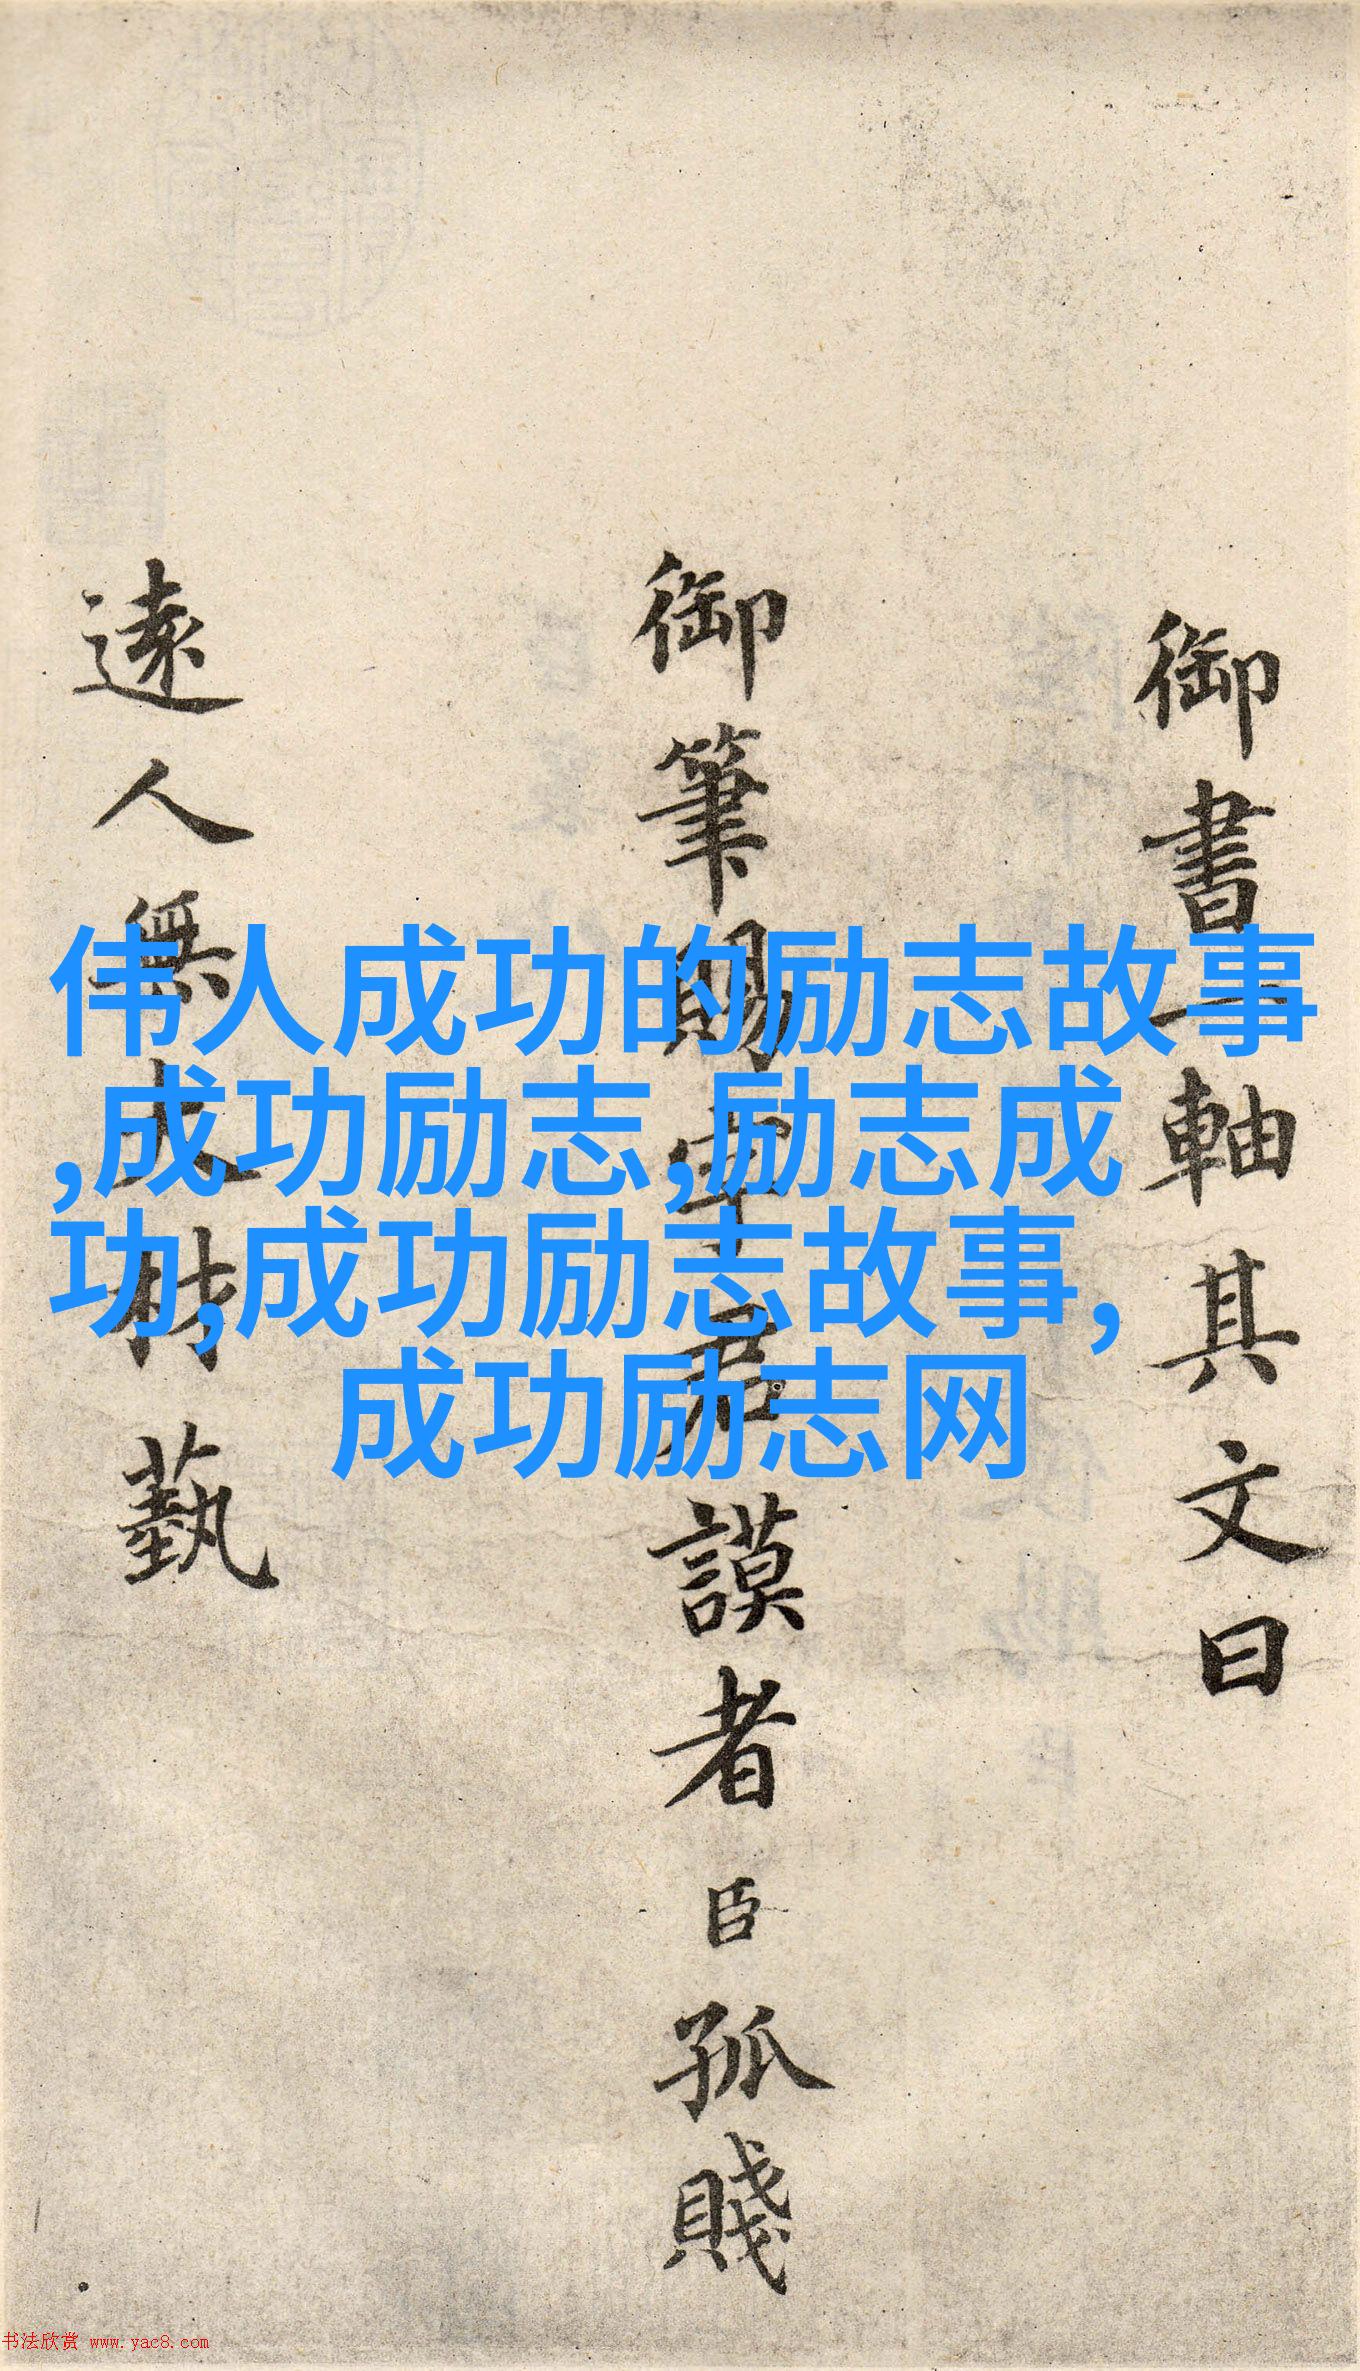 御書一軸其文曰
御筆賜字君謨者臣孤賤
遠人無大材藝
伟人成功的励志故事
,成功励志,励志成
功,成功励志故事,
成功励志网
书法欣赏 www.yac8.com